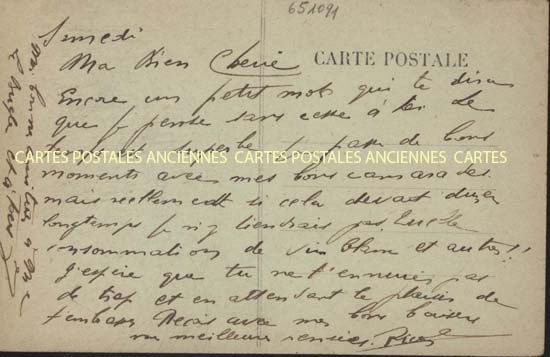 651091
CARTE POSTALE
Samedi
Ma Bien Cherie
Encore un petit mot qui te dira
que je pense sans cesse à toi Le
temps est superbe je passe de bons
moments avec mes bons camarades
mais réellement si cela devait durer
longtemps je n'y tiendrais pas Quelle
consommation de vin blanc et autres!!
J'espère que tu ne t'ennuies pas
de trop et en attendant le plaisir de
t'embrasser Reçois avec mes bons baisers
mes meilleures
CARTES POSTALES ANCIENNES CARTES POSTALES ANCIENNES CARTES